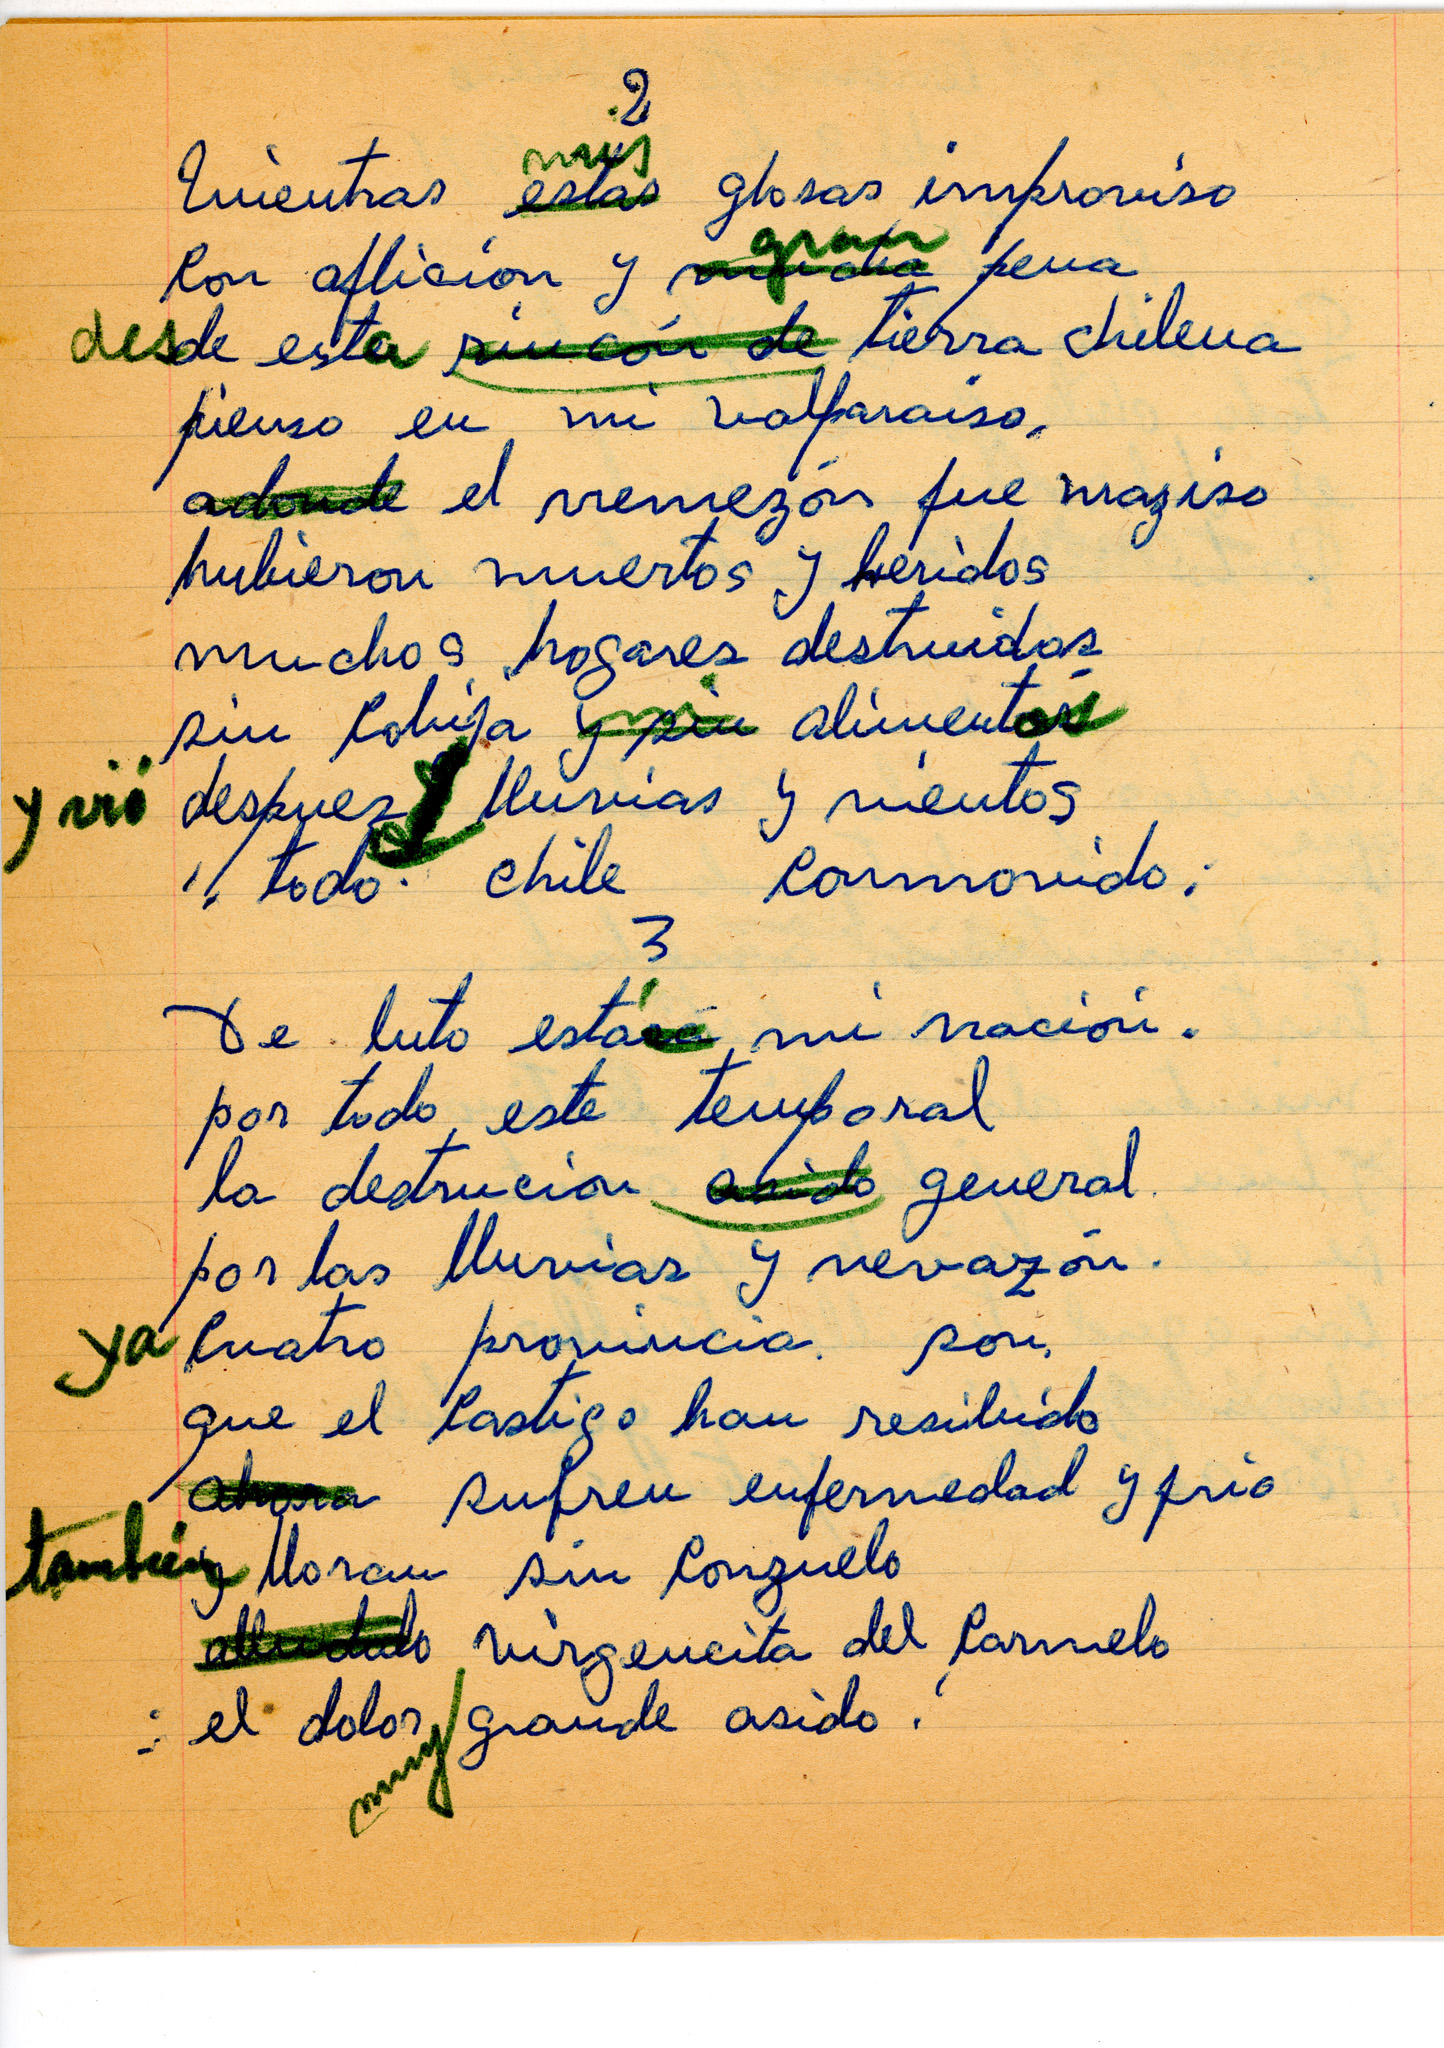 2
mis
Mientras estas glosas improviso
gran
Con aflición y mucha pena
desde esta rincón de tierra chilena
pienso en mi valparaiso.
adonde el remezón fue maziso
hubieron muertos y heridos
muchos hogares destruidos
sin Cobija y sin alimentos
y vió despuez y lluvias y vientos
" todo. chile Conmovido.
3
De luto estára mi nación.
por todo este temporal
la destrucion asido general.
por las lluvias y nevazón.
ya Cuatro provincia. son.
que el Castigo han resibido
ahora sufren enfermedad y frio
también y lloran sin Conzuelo
alludalo virgencita del Carmelo
: el dolor grande asido.
muy